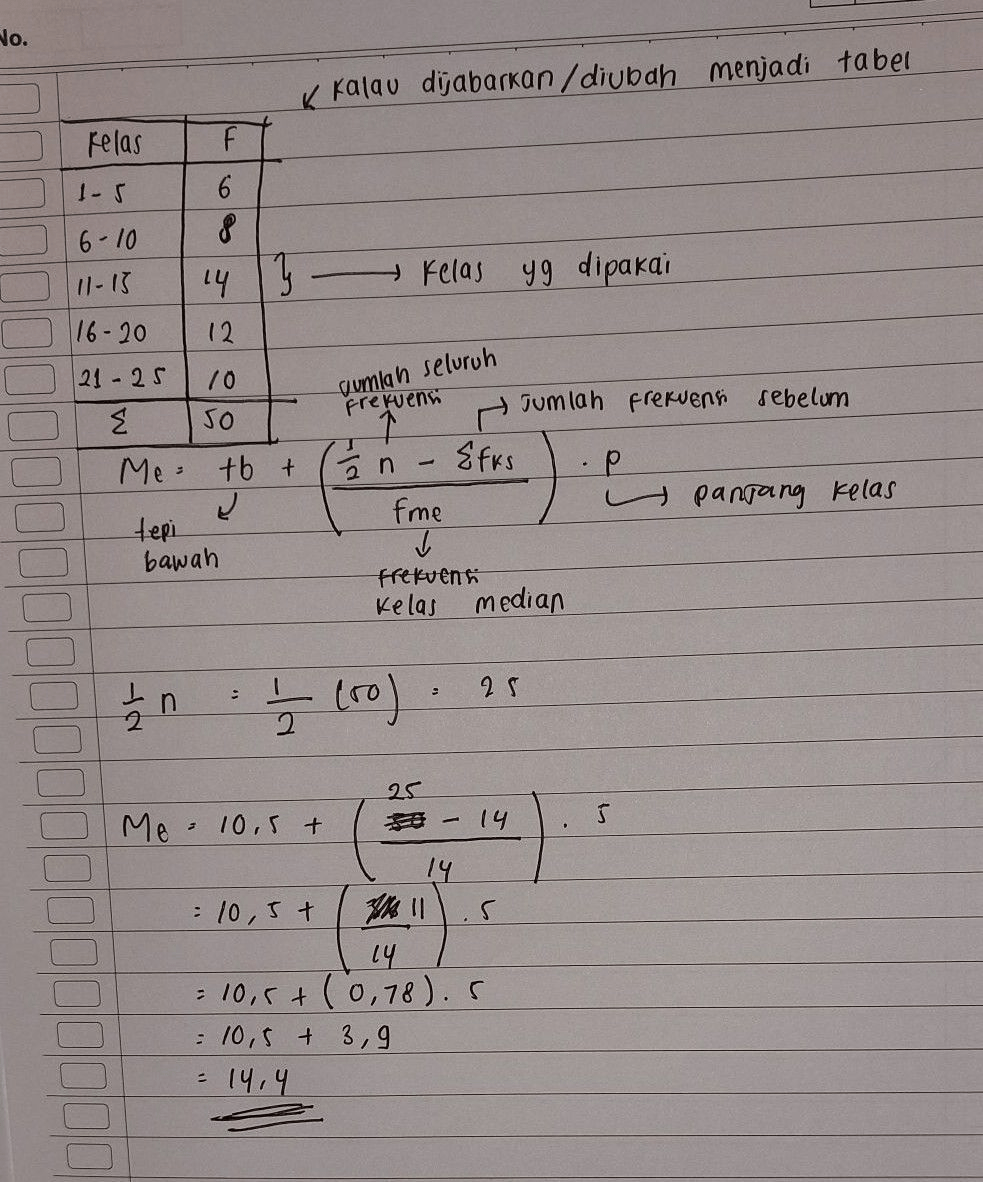 No.
↙ Kalau dijabarkan/diubah menjadi tabel
Kelas F
1-5 6
6-10 8
11-15 14 } → Kelas yg dipakai
16-20 12
21-25 10
Σ 50
jumlah seluruh
frekuensi
→ Jumlah frekuensi sebelum
Me = tb + (½ n - Σfks / fme) . p
→ panjang kelas
tepi
bawah
frekuensi
kelas median
½ n = ½ (50) = 25
Me = 10,5 + (25 - 14 / 14) . 5
= 10,5 + (11 / 14) . 5
= 10,5 + (0,78) . 5
= 10,5 + 3,9
= 14,4